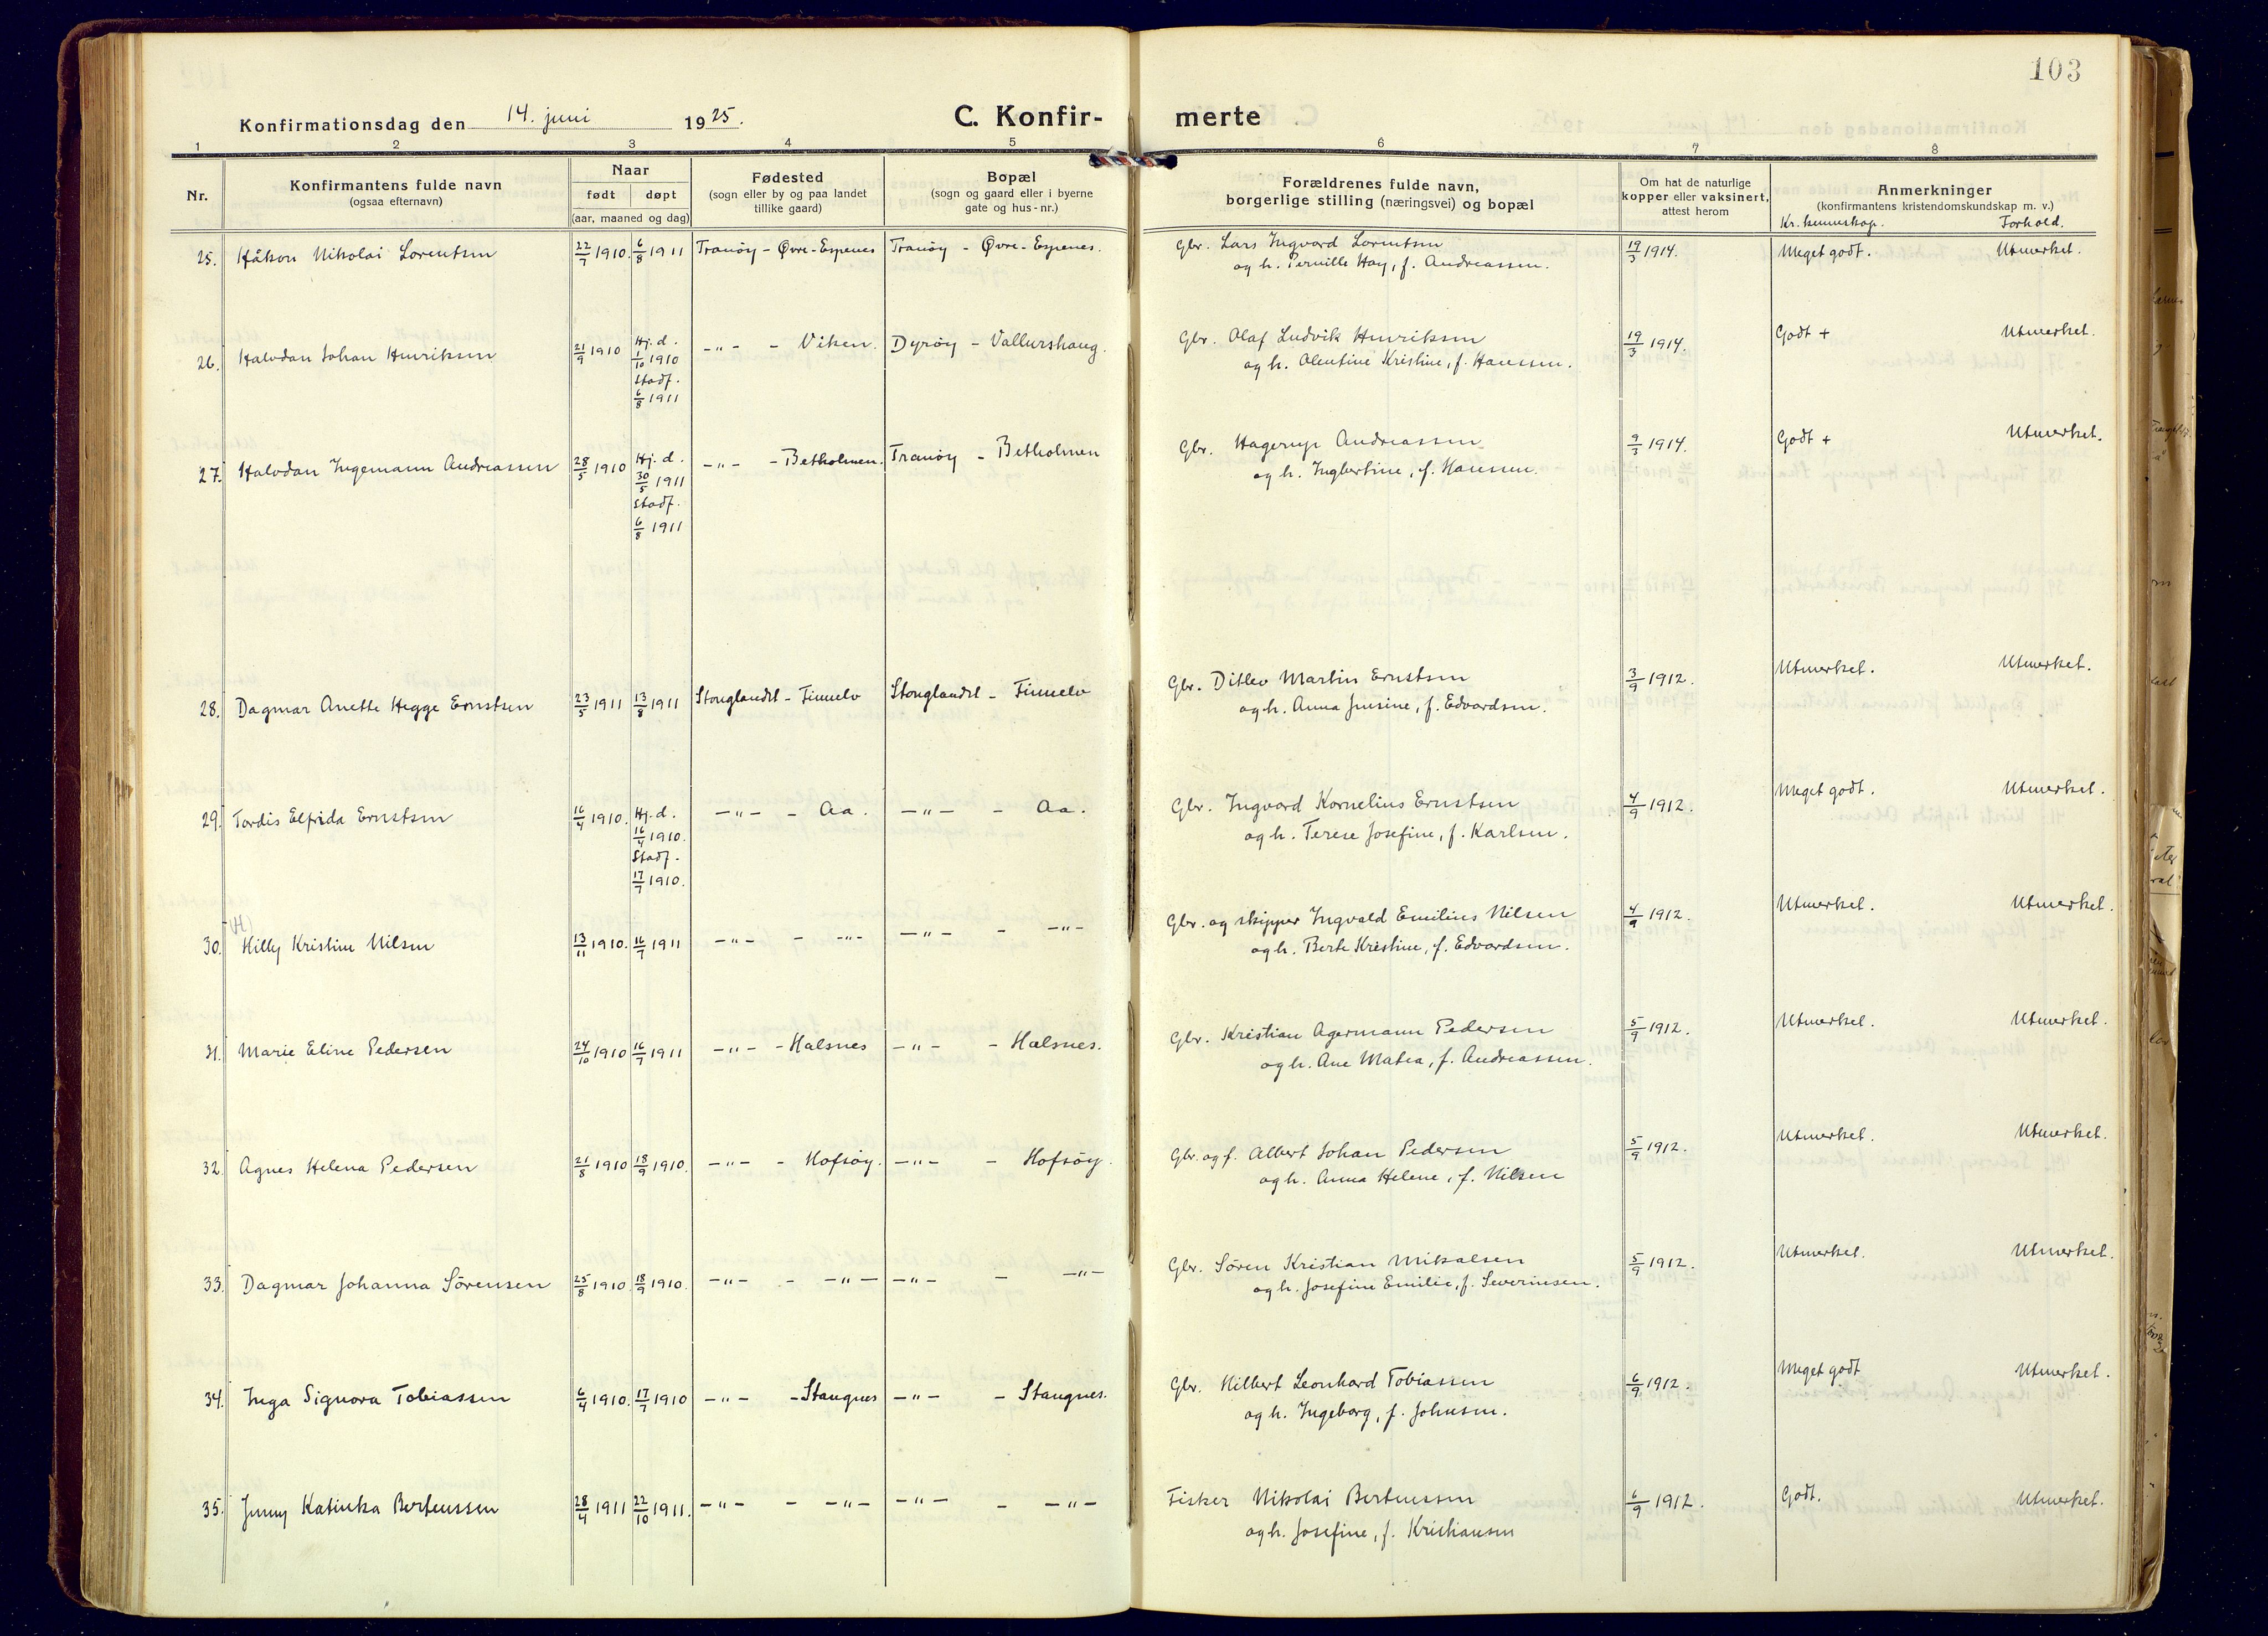 103
Konfirmationsdag den 14. juni 1925. C. Konfir- merte
1 2 3 4 5 6 7 8
Nr.
Konfirmantens fulde navn
(ogsaa efternavn)
Naar
født døpt
(aar, maaned og dag)
Fødested
(sogn eller by og paa landet
tillike gaard)
Bopæl
(sogn og gaard eller i byerne
gate og hus-nr.)
Forældrenes fulde navn,
borgerlige stilling (næringsvei) og bopæl
Om hat de naturlige
kopper eller vaksinert,
attest herom
Anmerkninger
(konfirmantens kristendomskundskap m. v.)
Kr. kunnskap. Forhold.
25. Håkon Nikolai Lorentsen 22/7 1910. 6/8 1911 Tranöy - Øvre-Espenes Tranöy - Øvre-Espenes. Gbr. Lars Ingvard Lorentsen 19/3 1914. Meget godt. Utmerket.
og h. Pernille Hay, f. Andreassen.
26. Halvdan Johan Henriksen 21/9 1910 Hj. d. -"- - Viken. Dyröy - Vallurshaug. Gbr. Olaf Ludvik Henriksen 19/3 1914. Godt + Utmerket.
1/10 1910 og h. Olentine Kristine, f. Hanssen.
Stadf.
6/8 1911
27. Halvdan Ingemann Andreassen 28/5 1910 Hj. d. -"- - Betholmen. Tranöy - Betholmen Gbr. Hagerup Andreassen 9/3 1914. Godt + Utmerket.
30/5 1911 og h. Ingbertine, f. Hanssen.
Stadf.
6/8 1911
28. Dagmar Anette Hegge Ernstsen 23/5 1911 13/8 1911 Stonglandet - Finnelv Stonglandet - Finnelv Gbr. Ditlev Martin Ernstsen 3/9 1912. Utmerket. Utmerket.
og h. Anna Jensine, f. Edvardsen.
29. Tordis Elfrida Ernstsen 16/4 1910. Hj. d. -"- - Aa. -"- - Aa. Gbr. Ingvard Kornelius Ernstsen 4/9 1912. Meget godt. Utmerket.
16/4 1910. og h. Terese Josefine, f. Karlsen.
Stadf.
17/7 1910.
(H)
30. Hilly Kristine Nilsen 13/11 1910. 16/7 1911 -"- - -"- -"- - -"- Gbr. og skipper Ingvald Emilius Nilsen 4/9 1912. Utmerket. Utmerket.
og h. Berte Kristine, f. Edvardsen.
31. Marie Eline Pedersen 24/10 1910 16/7 1911 -"- - Halsnes -"- - Halsnes. Gbr. Kristian Agermann Pedersen 5/9 1912. Utmerket. Utmerket.
og h. Ane Matea, f. Andreassen.
32. Agnes Helena Pedersen 21/8 1910 18/9 1910. -"- - Hofsöy. -"- - Hofsöy. Gbr. og f. Albert Johan Pedersen 5/9 1912. Utmerket. Utmerket.
og h. Anna Helene, f. Nilsen
33. Dagmar Johanna Sörensen 25/8 1910. 18/9 1910. -"- - -"- -"- - -"- Gbr. Sören Kristian Mikalsen 5/9 1912. Utmerket. Utmerket.
og h. Josefine Emilie, f. Severinsen.
34. Inga Signora Tobiassen 6/4 1910. 17/7 1910 -"- - Stangnes -"- - Stangnes. Gbr. Hilbert Leonhard Tobiassen 6/9 1912. Meget godt Utmerket.
og h. Ingeborg, f. Johnsen.
35. Jenny Katinka Berteussen 28/4 1911 22/10 1911. -"- - -"- -"- - -"- Fisker Nikolai Berteussen 6/9 1912. Godt. Utmerket.
og h. Josefine, f. Kristiansen